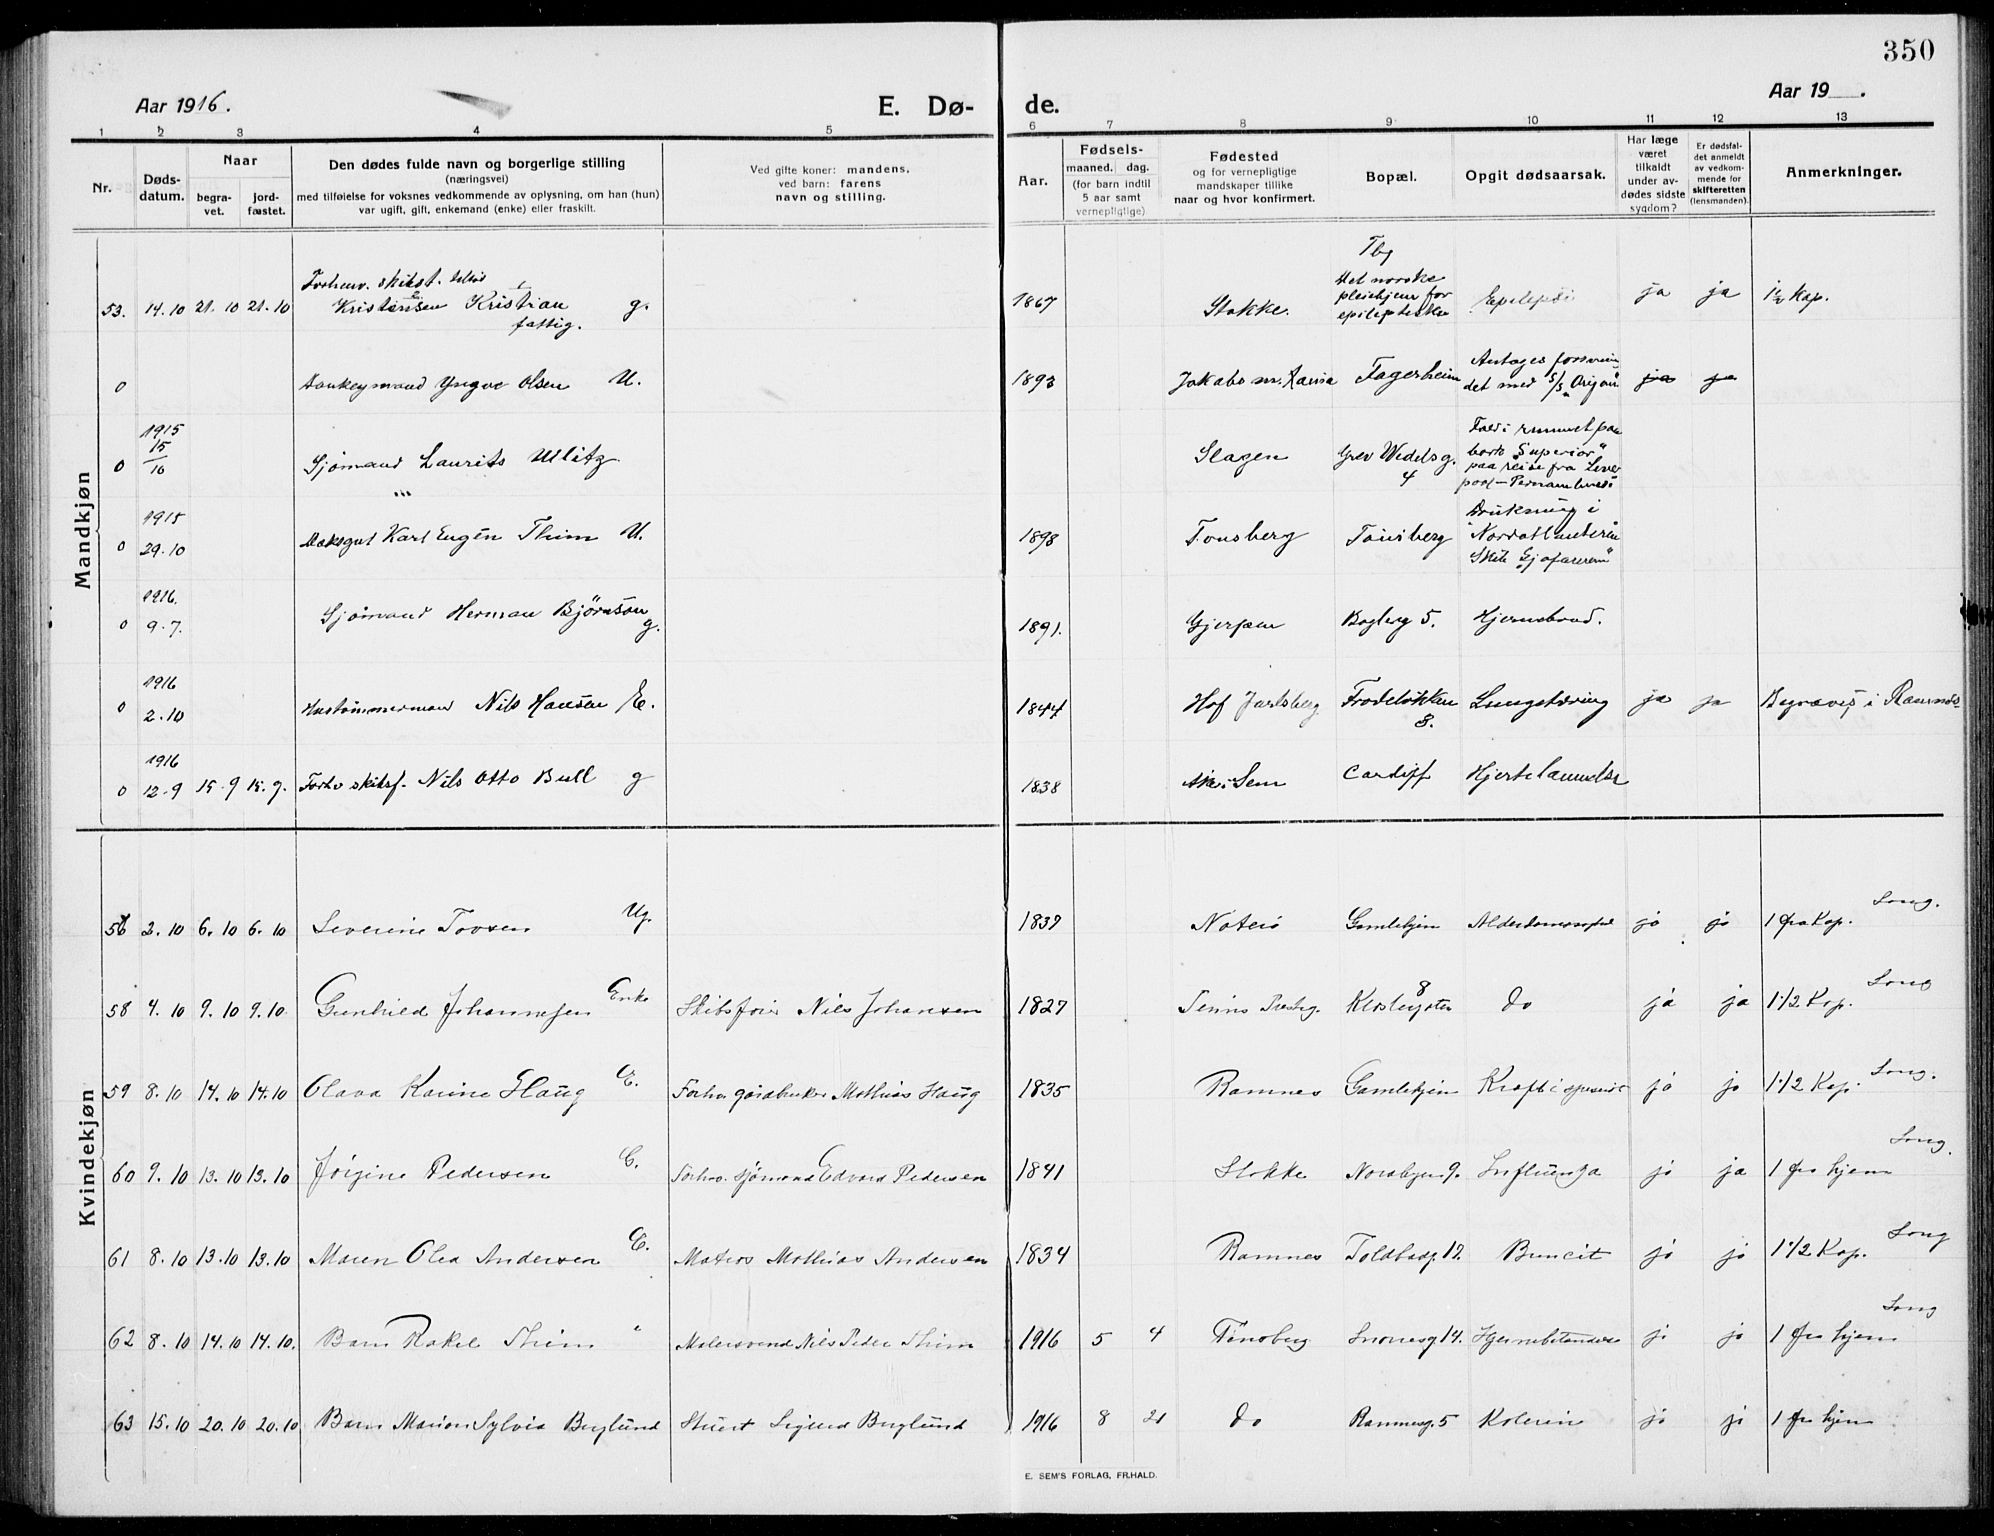 350
Aar 1916.
E. Dø-
de.
Aar 19 .
1 2 3 4 5 6 7 8 9 10 11 12 13
Nr.
Døds-
datum.
Naar
begra-
vet.
jord-
fæstet.
Den dødes fulde navn og borgerlige stilling
(næringsvei)
med tilføielse for voksnes vedkommende av oplysning, om han (hun)
var ugift, gift, enkemand (enke) eller fraskilt.
Ved gifte koner: mandens,
ved barn: farens
navn og stilling.
Aar.
Fødsels-
maaned. dag.
(for barn indtil
5 aar samt
vernepligtige)
Fødested
og for vernepligtige
mandskaper tillike
naar og hvor konfirmert.
Bopæl.
Opgit dødsaarsak.
Har læge
været
tilkaldt
under av-
dødes sidste
sygdom?
Er dødsfal-
det anmeldt
av vedkom-
mende for
skifteretten
(lensmanden).
Anmerkninger.
Mandkjøn
53. 14.10 21.10 21.10 Kristensen Kristian fattig. g. 1867 Stokke. Det norske pleiehjem for epileptiske Epilepsi ja ja 1½ Kap.
0 Donkeymand Yngve Olsen U. 1893 Fagerheim Antages forsvundet med S/S ja ja
0 1915 15/10 Sjømand Laurits Ulitz Slagen Grev Wedelsg. 4 Fald i rummet paa bark "Superior" paa reise fra Liverpool - Pernambuco
0 1915 29.10 Dæksgut Karl Eugén Thim U. 1898 Tønsberg Tønsberg Drukning i Nordatlanteren
0 1916. 9.7. Sjømand Herman Bjørnson g. 1891. Bagberg 5.
0 1916 2.10 Hustømmermand Nils Hansen E. 1844 Hof Jarlsberg Frodeløkken 8. Lungetæring ja ja Begraves i Ramnes
0 1916 12.9 15.9 15.9. Forhv skibsf. Nils Otto Bull g 1838 Sem Cardiff Hjertelammelse
Kvindekjøn
56 2.10 6.10 6.10 Severine Tovsen Ug. 1837 Nøterø Gamlehjem ja ja 1 fra Kap. Song.
58 4.10 9.10 9.10. Gunhild Johannesen Enke Skibsfører Nils Johansen 1827 8 Do ja ja 1.1/2 Kap. Song
59 8.10 14.10 14.10 Olava Karine Haug E. Forhv. gårdbruker Mathias Haug 1835 Ramnes Gamlehjem Kræft i spiserør ja ja 1.1/2 Kap. Song.
60 9.10 13.10 13.10 Jørgine Pedersen E. Forhv. sjømand Edvard Pedersen 1841 Stokke Nordbyen 9. Influenza ja ja 1 fra hjem Song.
61 8.10 13.10 13.10 Maren Olea Andersen E. Matros Mathias Andersen 1834 Ramnes Toldbodg. 17. ja ja 1 1/2 Kap. Song
62 8.10 14.10 14.10. Barn Rakel Thim " Malersvend Nils Peder Thim 1916 5 4 Tønsberg Snorresg 14. Hjernebetændelse ja ja 1 fra hjem Song
63 15.10 20.10 20.10 Barn Marion Sylvia Berglund Stuert Sigurd Berglund 1916 8 21 Do Ramnesg. 5 Kolerin ja ja 1 fra hjem
E. SEM'S FORLAG, FR.HALD.